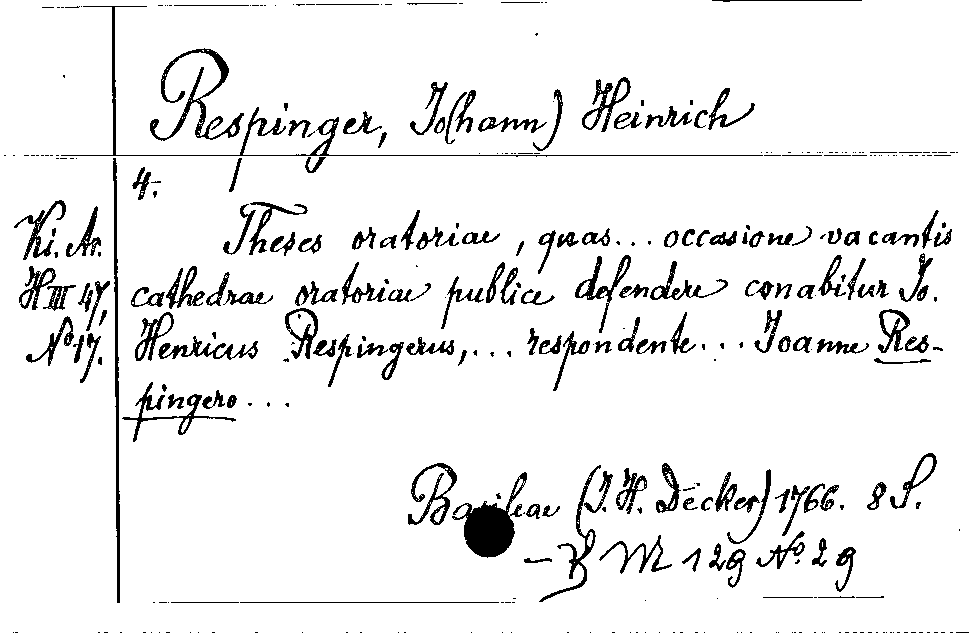 Respinger, Jo(hann) Heinrich
4.
Ki. Ar.
H III 47,
No 17.
Theses oratoriae, quas... occasione vacantis
cathedrae oratoriae publice defendere conabitur Jo.
Henricus Respingerus,... respondente... Joanne Res-
pingero...
Basileae (J. H. Decker) 1766. 8 S.